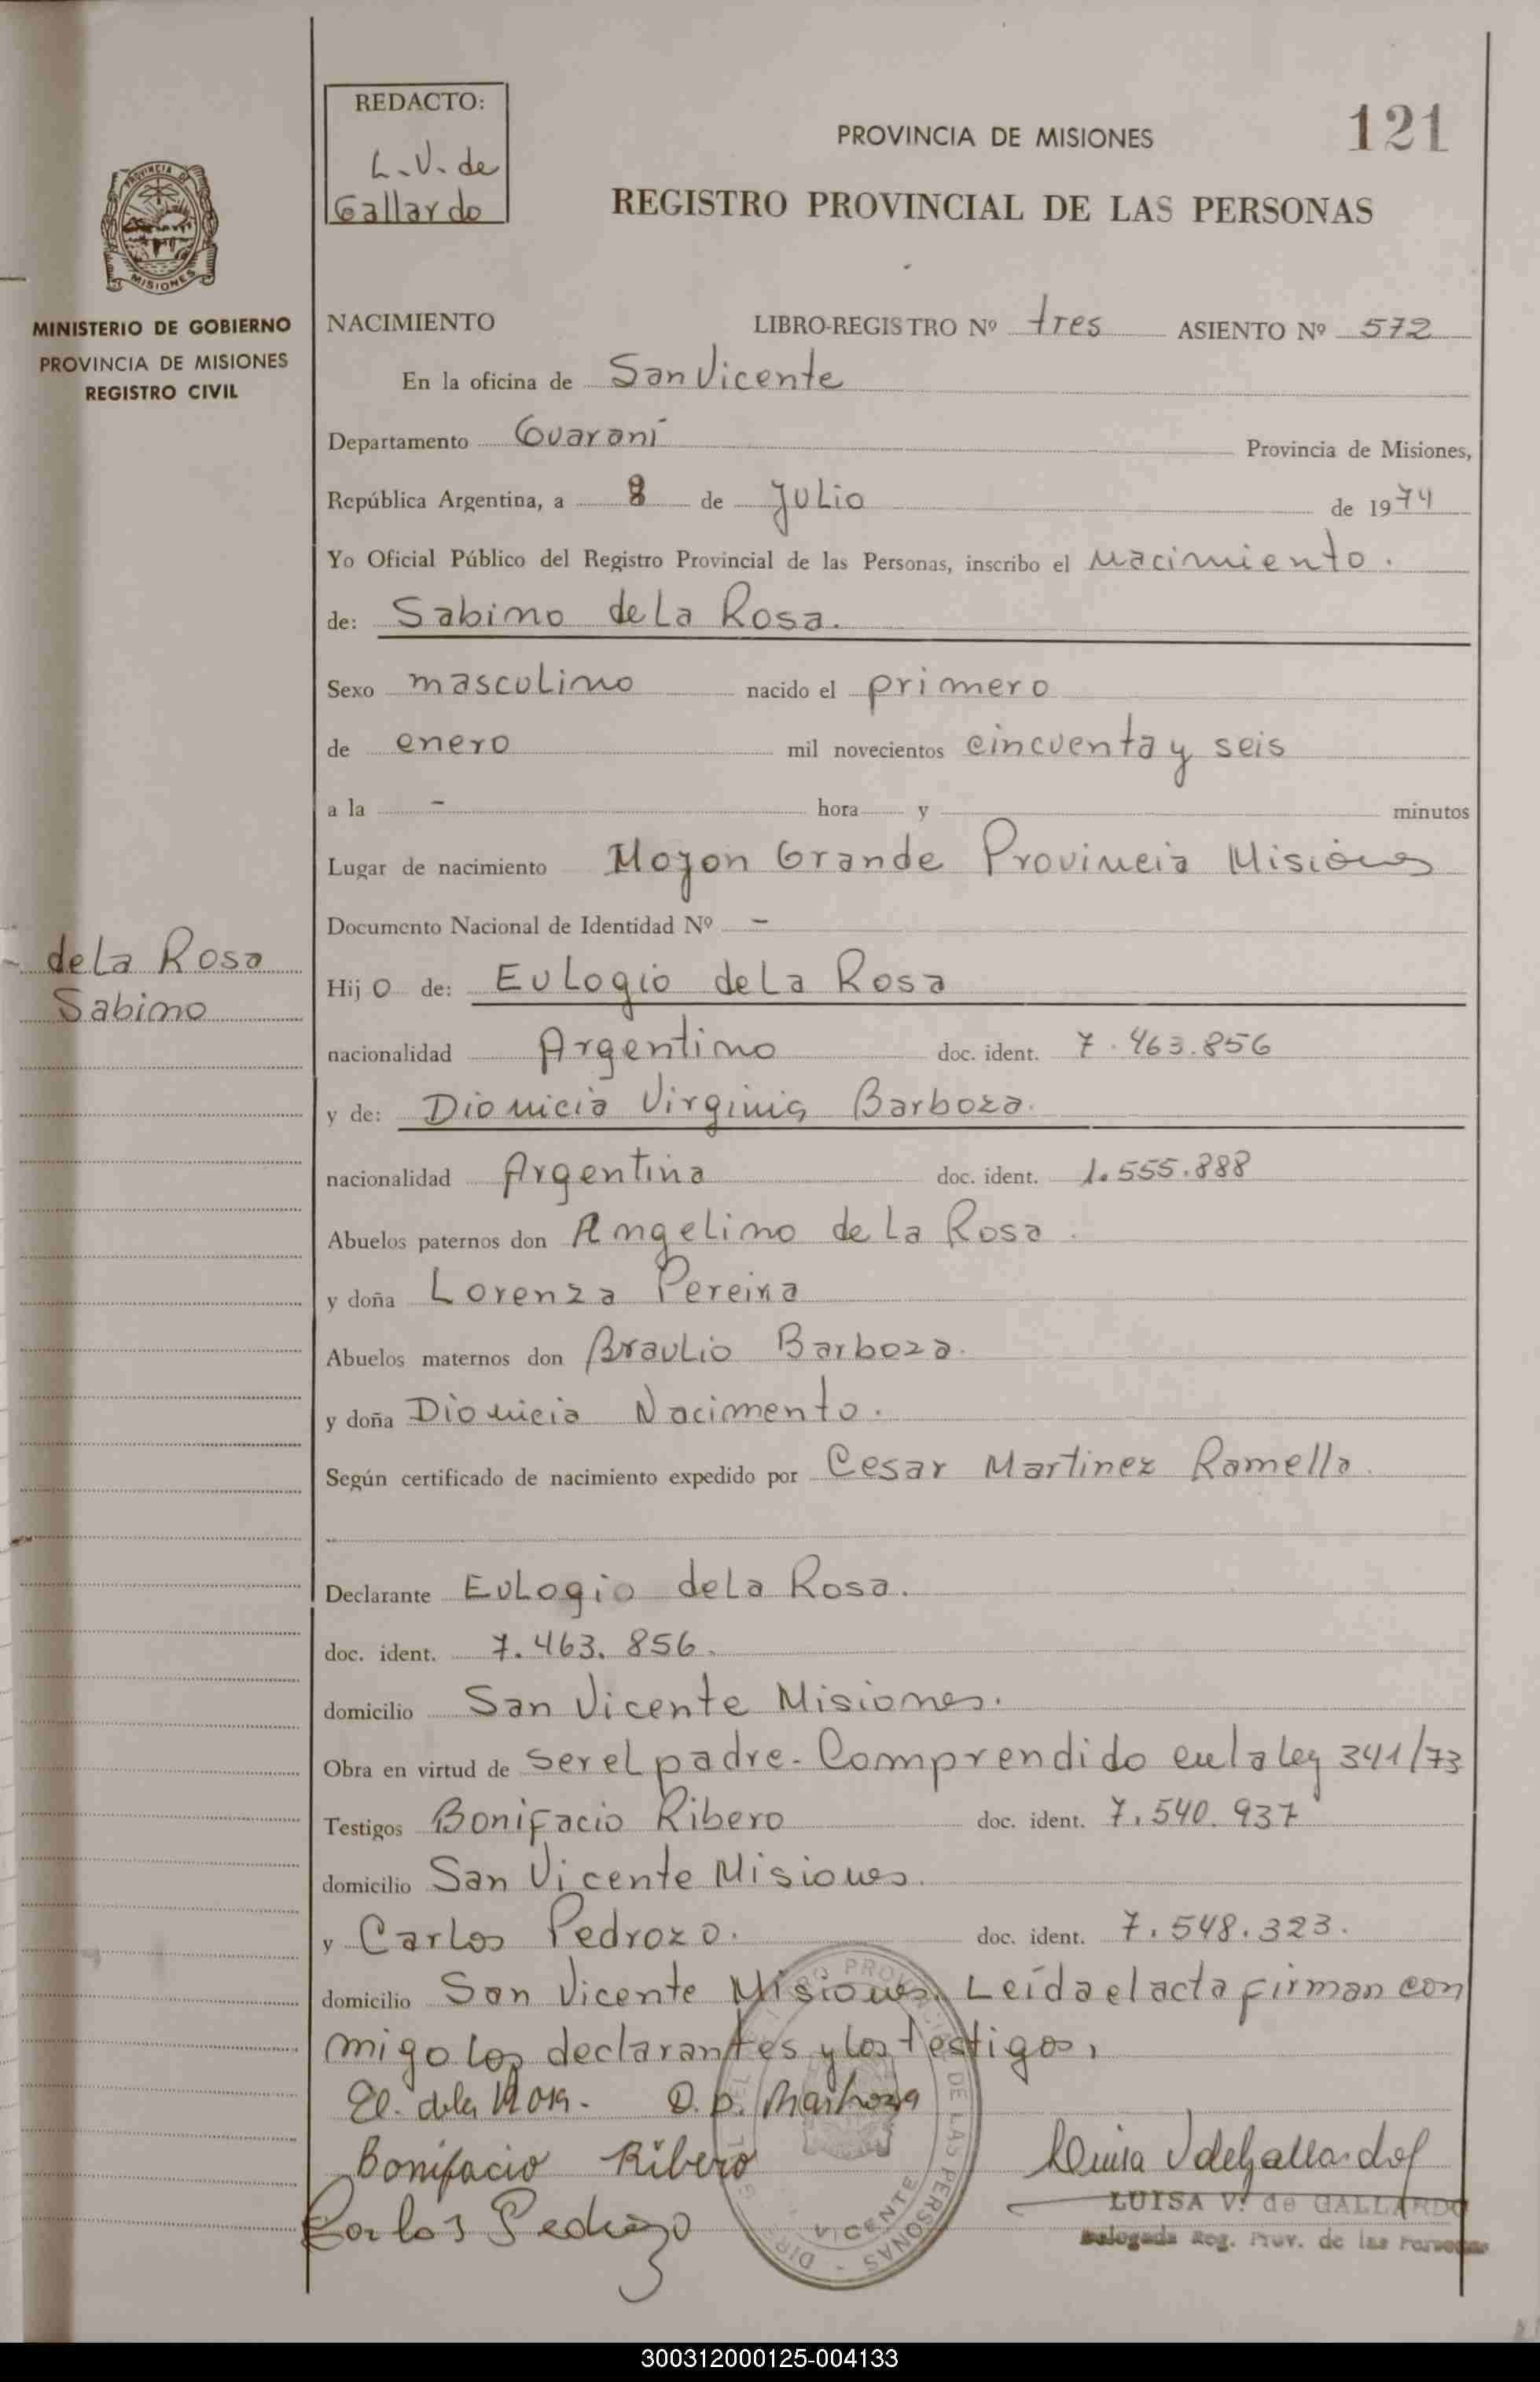 REDACTO:
L.V. de
Gallardo
PROVINCIA DE MISIONES
121
REGISTRO PROVINCIAL DE LAS PERSONAS
PROVINCIA DE
MISIONES
MINISTERIO DE GOBIERNO
PROVINCIA DE MISIONES
REGISTRO CIVIL
NACIMIENTO LIBRO-REGISTRO Nº tres ASIENTO Nº 572
En la oficina de San Vicente
Departamento Guaraní Provincia de Misiones,
República Argentina, a 8 de Julio de 1974
Yo Oficial Público del Registro Provincial de las Personas, inscribo el Nacimiento.
de: Sabino de la Rosa.
Sexo masculino nacido el primero
de enero mil novecientos cincuenta y seis
a la - hora y minutos
Lugar de nacimiento Mojon Grande Provincia Misiones
Documento Nacional de Identidad Nº -
de la Rosa
Sabino
Hijo de: Eulogio de la Rosa
nacionalidad Argentino doc. ident. 7.463.856
y de: Dionicia Virginia Barboza.
nacionalidad Argentina doc. ident. 1.555.888
Abuelos paternos don Angelino de la Rosa.
y doña Lorenza Pereira
Abuelos maternos don Braulio Barboza.
y doña Dionicia Nacimento.
Según certificado de nacimiento expedido por Cesar Martinez Ramella.
Declarante Eulogio de la Rosa.
doc. ident. 7.463.856.
domicilio San Vicente Misiones.
Obra en virtud de ser el padre. Comprendido en la ley 341/73
Testigos Bonifacio Ribero doc. ident. 7.540.937
domicilio San Vicente Misiones.
y Carlos Pedrozo. doc. ident. 7.548.323.
domicilio San Vicente Misiones. Leída el acta firman con
migo los declarantes y los testigos,
El. de la Rosa. D.
Bonifacio Ribero
Carlos Pedrozo
Luisa V de Gallardo
LUISA V. de GALLARDO
Delegada Reg. Prov. de las Personas
VICENTE
DE LAS PERSONAS
300312000125-004133